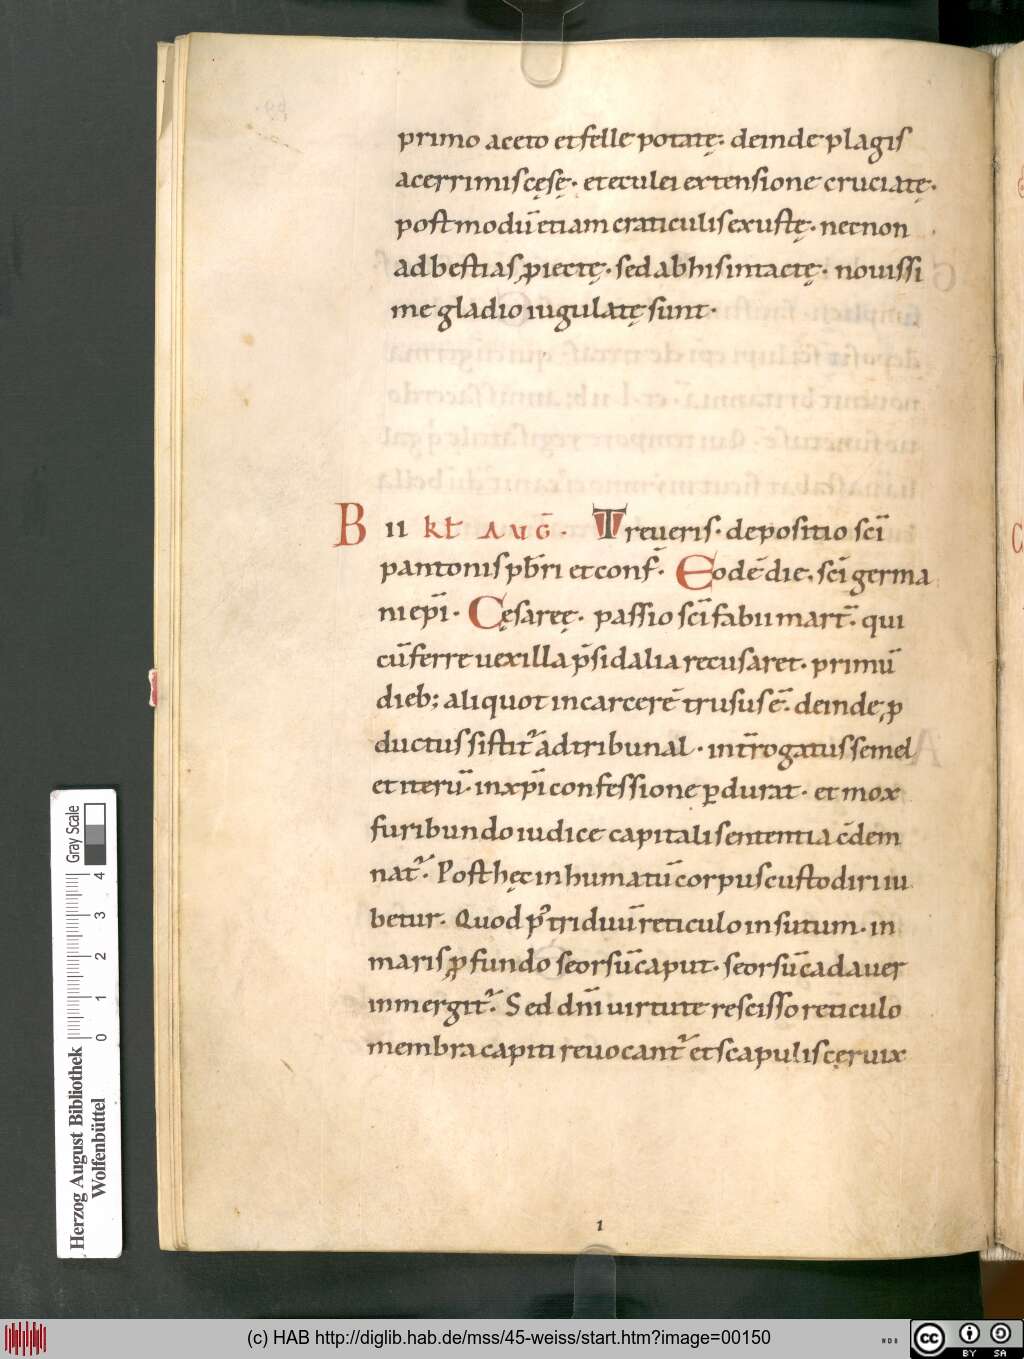 primo aceto et felle potatę. deinde plagis
acerrimis cęsę. et eculei extensione cruciatę.
postmodū etiam craticulis exustę. necnon
ad bestias ꝓiectę. sed ab his intactę. nouissi
me gladio iugulatę sunt.
B II KŁ AUḠ. Treueris. depositio sc̄i
pantonis pb̄ri et conf̄. Eodē die. sc̄i germa
ni ep̄i. Cęsareę. passio sc̄i fabii mart̄. qui
cū ferre uexilla p̄sidalia recusaret. primū
dieb; aliquot in carcerē trusus ē. deinde ꝓ
ductus sistit᷑ ad tribunal. int̄rogatus semel
et iterū. in xp̄i confessione ꝑdurat. et mox
furibundo iudice capitali sententia c̄dem
nat᷑. Post hęc inhumatū corpus custodiri iu
betur. Quod p᷒ triduū reticulo insutum. in
maris ꝓfundo seorsū caput. seorsū cadauer
inmergit᷑. Sed dn̄i uirtute rescisso reticulo
membra capiti reuocant᷑ et scapulis cęruix
1
Herzog August Bibliothek
Wolfenbüttel
0 1 2 3 4
Gray Scale
(c) HAB http://diglib.hab.de/mss/45-weiss/start.htm?image=00150
WDB
cc BY SA